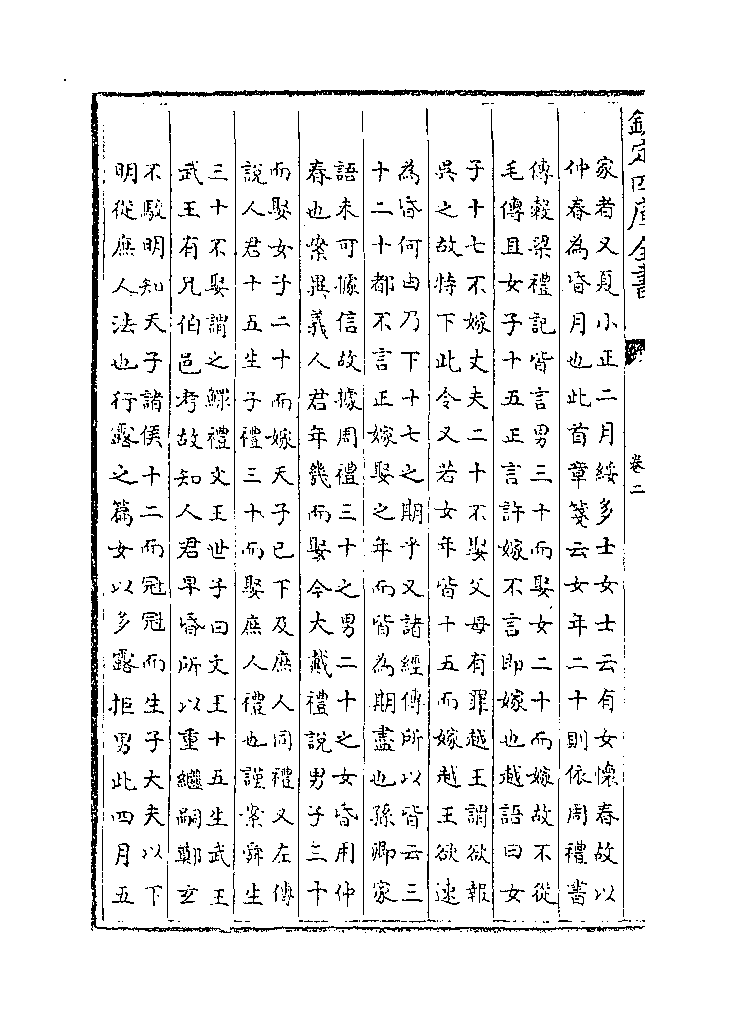 欽定四庫全書
卷二
家者又夏小正二月綏多士女士云有女懷春故以
仲春為昏月也此首章箋云女年二十則依周禮書
傳穀梁禮記皆言男三十而娶女二十而嫁故不從
毛傳且女子十五正言許嫁不言即嫁也越語曰女
子十七不嫁丈夫二十不娶父母有罪越王謂欲報
吳之故特下此令又若女年皆十五而嫁越王欲速
為昏何由乃下十七之期乎又諸經傳所以皆云三
十二十都不言正嫁娶之年而皆為期盡也孫卿家
語未可據信故據周禮三十之男二十之女昏用仲
春也案異義人君年幾而娶今大戴禮說男子三十
而娶女子二十而嫁天子已下及庶人同禮又左傳
說人君十五生子禮三十而娶庶人禮也謹案舜生
三十不娶謂之鰥禮文王世子曰文王十五生武王
武王有兄伯邑考故知人君早昏所以重繼嗣鄭玄
不駁明知天子諸侯十二而冠冠而生子大夫以下
明從庶人法也行露之篇女以多露拒男此四月五